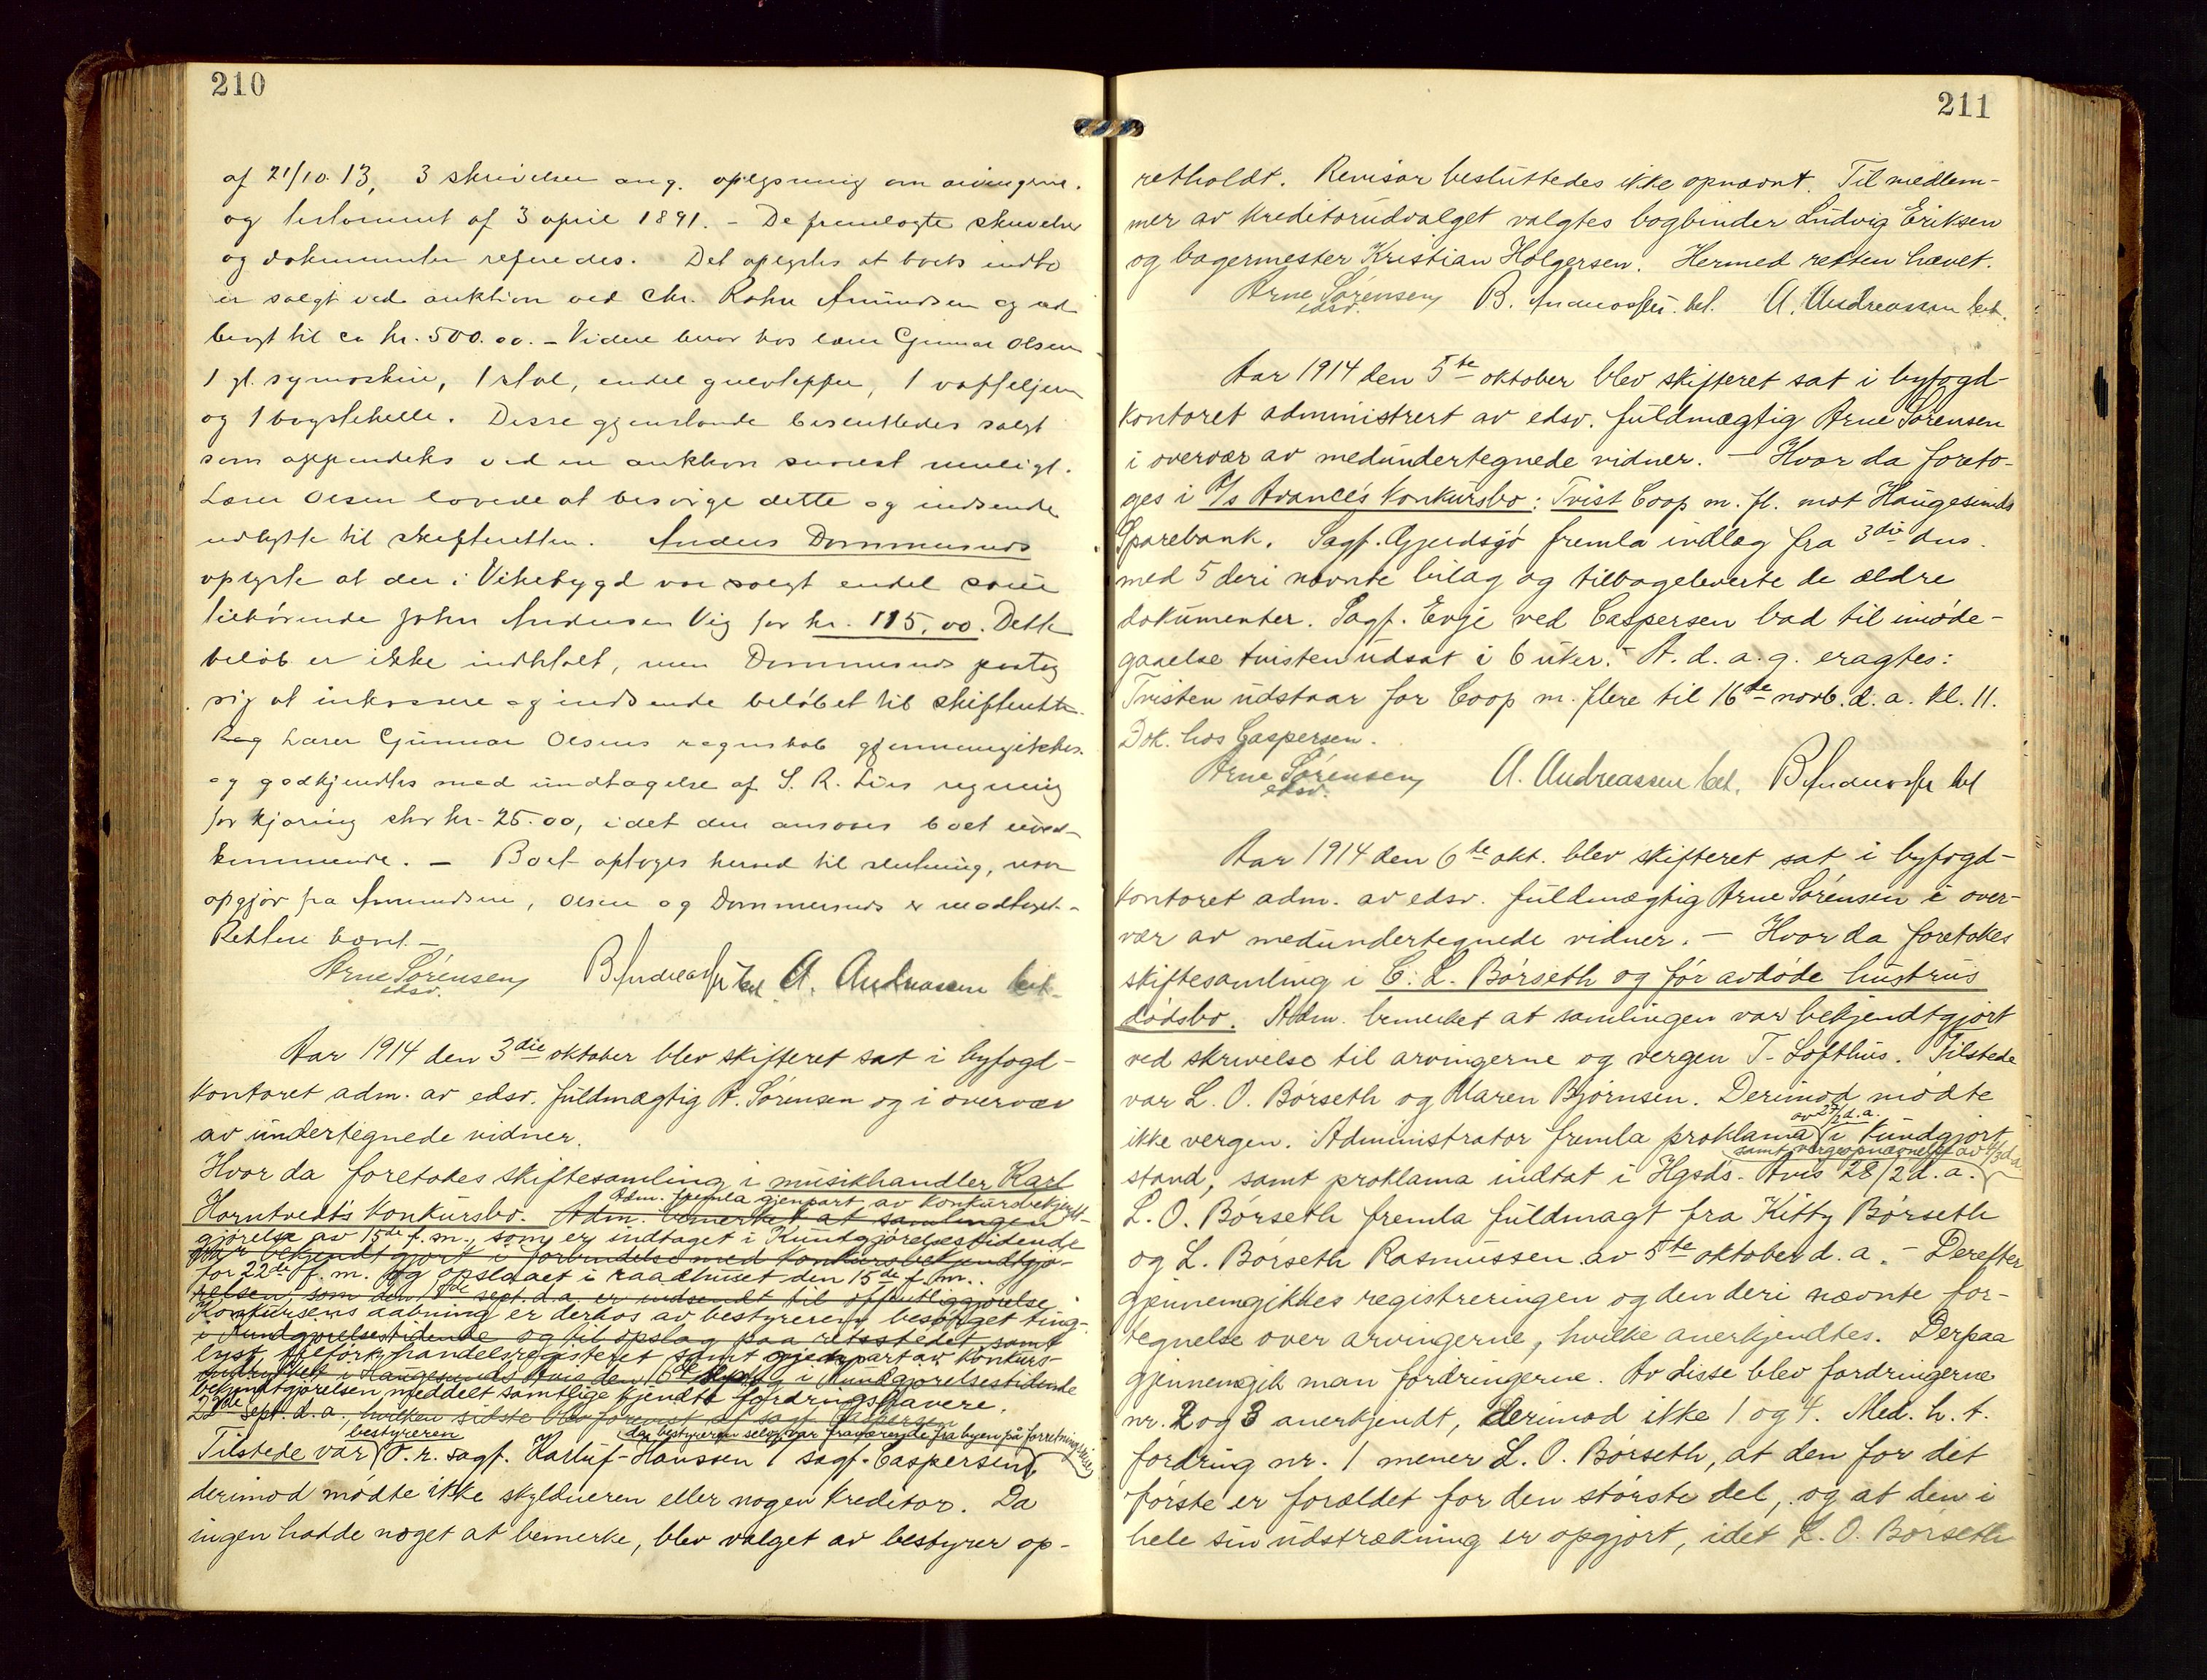 210
af 21/10.13, 3 skrivelser ang. oplysning om arvingerne.
og testament af 3 april 1891. - De fremlagte skrivelser
og dokumenter referedes. Det oplystes at boets indbo
er solgt ved auktion ved Chr. Amundsen og ud
bragt til ca kr. 500.00. - Videre beror hos lærer Gunnar Olsen
1 gl. symaskin, 1 stol, endel gulvtepper, 1 vaffeljern
og 1 boghylle. Disse gjenstande besluttedes solgt
som appendeks ved en auktion snarest muligt.
Lærer Olsen lovede at besørge dette og indsende
udbytte til skifteretten. Anders Dommersnes
oplyste at der i Vikebygd var solgt endel
tilhørende John Andersen Vig for kr. 115,00. Dette
beløb er ikke indbetalt, men Dommersnes paatog
sig at inkassere og indsende beløbet til skifteretten.
Lærer Gunnar Olsens regnskab gjennemgikkes
og godkjendtes med undtagelse af S. R. Lies regning
for kjøring stor kr. 25.00, idet den ansaaes boet uved-
kommende. - Boet optages herved til slutning, naar
opgjør fra Amundsen, Olsen og Dommersnes er modtaget.-
Retten hævet.-
Arne Sørensen B. Andreassen bet. A. Andreassen bet.
edsv.
Aar 1914 den 3die oktober blev skifteret sat i byfogd-
kontoret adm. av edsv. fuldmægtig A. Sørensen og i overvær
av undertegnede vidner.
Hvor da foretokes skiftesamling i musikhandler Karl
Adm. fremla gjenpart av konkursbekjendt-
Horntvedt's konkursbo. Adm. bemerket at samlingen
gjørelse av 15de f.m., som er indtaget i Kundgjørelsestidende
var bekjendtgjort i forbindelse med konkursbekjendtgjø-
for 22de f.m. og opslaaet i raadhuset den 15de f.m..
relsen, som den 15de sept. d.a. er indsendt til offentliggjørelse
Konkursens aabning er derhos av bestyreren besørget ting-
i Kundgjørelsestidende og til opslag paa retsstedet samt
lyst, tilført handelsregisteret samt gjenpart av konkurs-
indrykket i Haugesunds Avis den 16de sept. og i Kundgjørelsestidende
bekjendtgjørelsen meddelt samtlige kjendte fordringshavere.
22de sept. d.a., hvilken sidste blev foreviist af sagf. Caspersen
bestyreren da bestyreren selv var fraværende fra byen på forretningsreise
Tilstede var O.r. sagf. Karluf-Hanssen / sagf. Caspersen,
derimod mødte ikke skyldneren eller nogen kreditor. Da
ingen hadde noget at bemerke, blev valget av bestyrer op-
211
retholdt. Revisor besluttedes ikke opnævnt. Til medlem-
mer av kreditorudvalget valgtes bogbinder Ludvig Eriksen
og bagermester Kristian Holgersen. Hermed retten hævet.
Arne Sørensen B. Andreassen bet. A. Andreassen bet.
edsv.
Aar 1914 den 5te oktober blev skifteret sat i byfogd-
kontoret administrert av edsv. fuldmægtig Arne Sørensen
i overvær av medundertegnede vidner. - Hvor da foreto-
ges i A/s Avance's konkursbo: Tvist Coop m. fl. mot Haugesunds
Sparebank. Sagf. Gjerdsjø fremla indlæg fra 3die dns.
med 5 deri nævnte bilag og tilbageleverte de ældre
dokumenter. Sagf. Evje ved Caspersen bad til imøde-
gaaelse tvisten udsat i 6 uker. - A. d. a. g. eragtes:
Tvisten udstaar for Coop m. flere til 16de novb. d. a. kl. 11.
Dok. hos Caspersen.
Arne Sørensen A. Andreassen bet. B. Andreassen bet
edsv.
Aar 1914 den 6te okt. blev skifteret sat i byfogd-
kontoret adm. av edsv. fuldmægtig Arne Sørensen i over-
vær av medundertegnede vidner. - Hvor da foretokes
skiftesamling i C. L. Børseth og før avdøde hustrus
dødsbo. Adm. bemerket at samlingen var bekjendtgjort
ved skrivelse til arvingerne og vergen T. Lofthus. Tilstede
var L. O. Børseth og Maren Bjørnsen. Derimod mødte
av 27/2 d. a.
ikke vergen. Administrator fremla proklama i kundgjort
samt vergeopnævnelse av 4/3 d.a.
stand, samt proklama indtat i Hgsd's Avis 28/2 d. a.
L. O. Børseth fremla fuldmagt fra Kitty Børseth
og L. Børseth Rasmussen av 5te oktober d. a. - Derefter
gjennemgikkes registreringen og den deri nævnte for-
tegnelse over arvingerne, hvilke anerkjendtes. Derpaa
gjennemgik man fordringerne. Av disse blev fordringerne
nr. 2 og 3 anerkjendt, derimod ikke 1 og 4. Med. h. t.
fordring nr. 1 mener L. O. Børseth, at den for det
første er forældet for den største del, og at den i
hele sin udstrækning er opgjort, idet L. O. Børseth